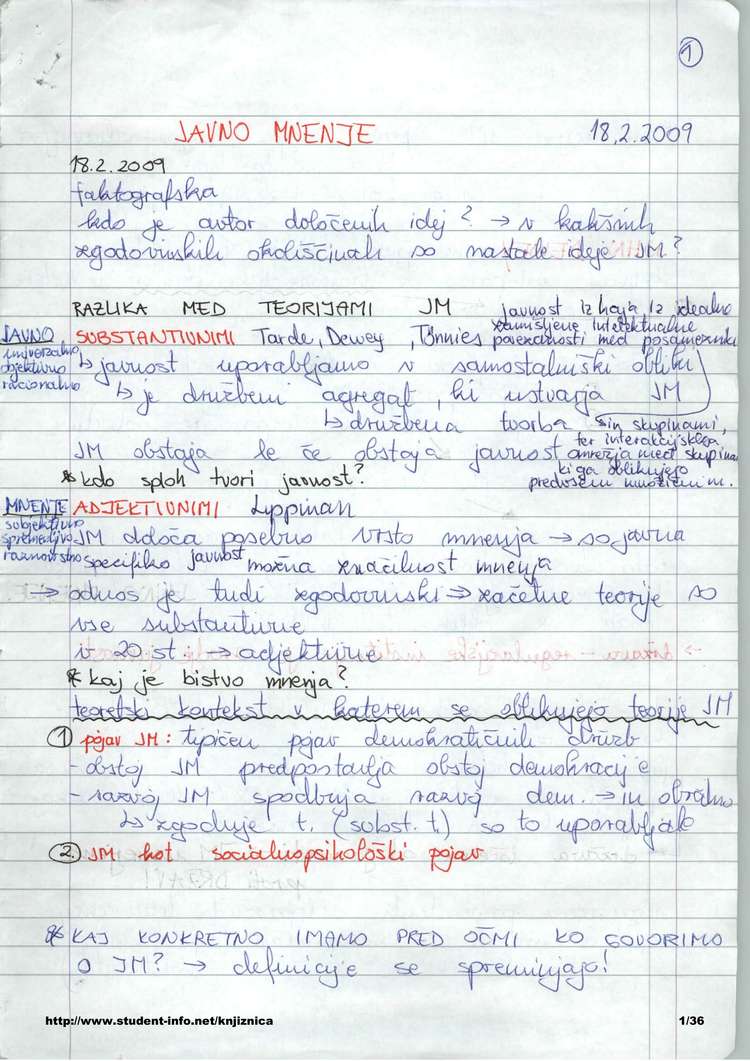 1
JAVNO MNENJE 18.2.2009
18.2.2009
faktografska
kdo je avtor določenih idej? → v kakšnih
zgodovinskih okoliščinah so nastale ideje JM?
RAZLIKA MED TEORIJAMI JM
javnost izhaja iz idealno
zamišljene intelektualne
povezanosti med posamezniki
in skupinami,
ter interakcijskega
omrežja med skupinami
ki ga oblikujejo
predvsem množični m.
JAVNO
univerzalno
objektivno
racionalno
SUBSTANTIVNIMI Tarde, Dewey, Tönnies
↳ javnost uporabljamo v samostalniški obliki
↳ je družbeni agregat, ki ustvarja JM
↳ družbena tvorba
JM obstaja le če obstaja javnost
* kdo sploh tvori javnost?
MNENJE
subjektivno
spremenljivo
raznovrstno
ADJEKTIVNIMI Lippman
JM določa posebno vrsto mnenja → so javna
specifiko javnost možna značilnost mnenja
→ odnos je tudi zgodovinski → začetne teorije so
vse substantivne
v 20 st. → adjektivne
* kaj je bistvo mnenja?
teoretski kontekst v katerem se oblikujejo teorije JM
1 pojav JM: tipičen pojav demokratičnih družb
- obstoj JM predpostavlja obstoj demokracije
- razvoj JM spodbuja razvoj dem. → in obratno
↳ zgodnje t. (subst. t.) so to uporabljale
2. JM kot socialnopsihološki pojav
* KAJ KONKRETNO IMAMO PRED OČMI KO GOVORIMO
O JM? → definicije se spreminjajo!
http://www.student-info.net/knjiznica 1/36